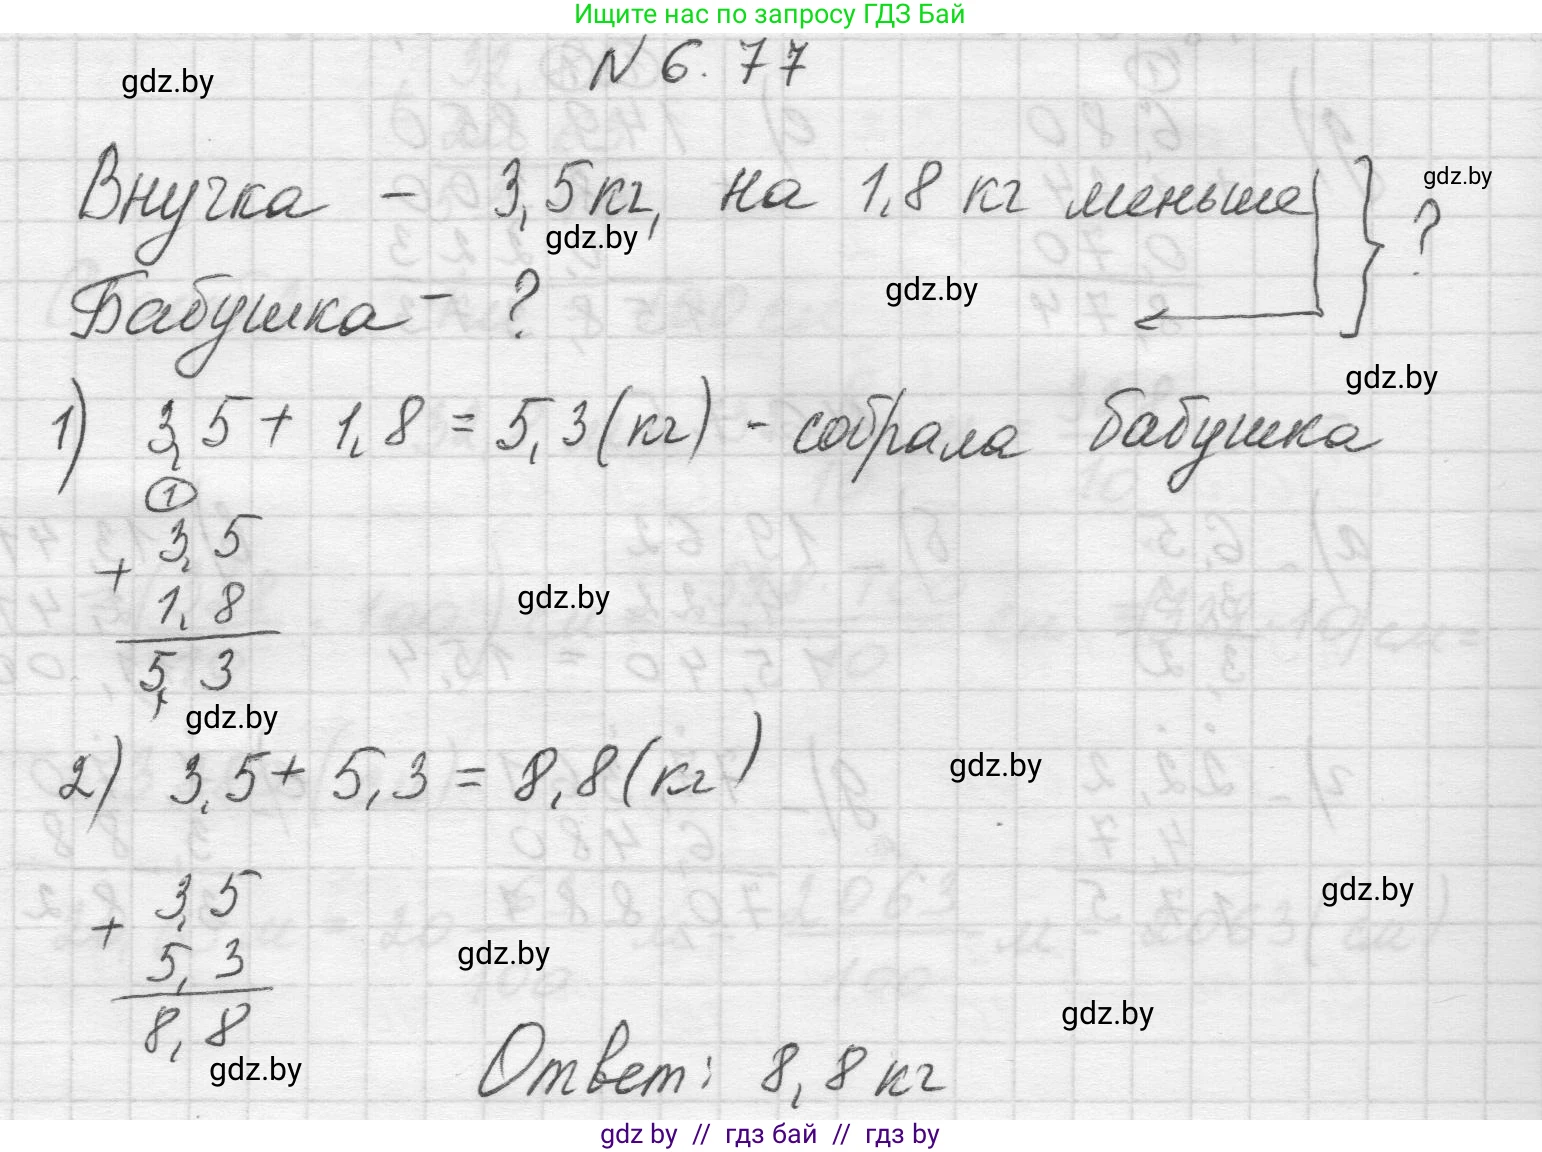 Ищите нас по запросу ГДЗ Бай
N 6.77
gdz.by
Внучка - 3,5 кг, на 1,8 кг меньше } ?
gdz.by
gdz.by
Бабушка - ?
gdz.by
gdz.by
1) 3,5 + 1,8 = 5,3 (кг) - собрала бабушка
1
3,5
+
1,8
gdz.by
5,3
gdz.by
2) 3,5 + 5,3 = 8,8 (кг)
gdz.by
3,5
gdz.by
+
5,3
gdz.by
8,8
gdz.by
gdz.by
Ответ: 8,8 кг
gdz by // гдз бай // гдз by